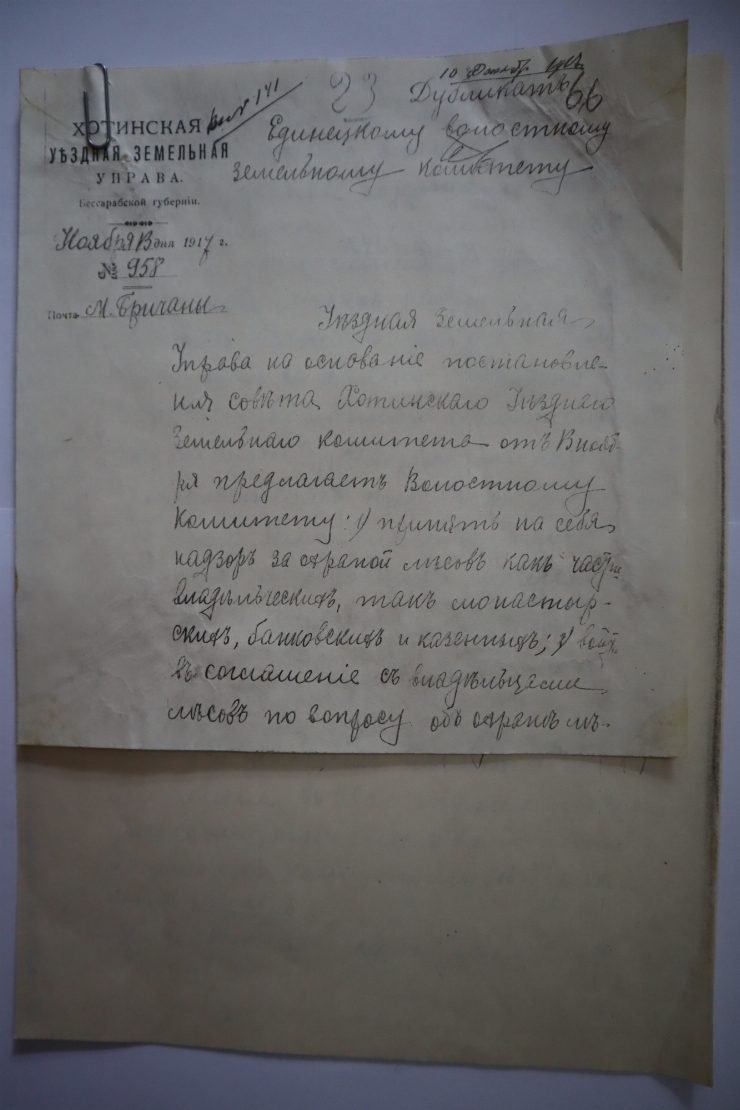 10 Декабр.
23
Дубликатъ 66
141
ХОТИНСКАЯ
УѢЗДНАЯ ЗЕМЕЛЬНАЯ
УПРАВА.
Бессарабской губерніи.
Ноября 13 дня 1917 г.
№ 958
Почта М. Бричаны
Единецкому волостному
земельному комитету
Уѣздная Земельная
Управа на основаніе постановле-
нія совѣта Хотинскаго Уѣзднаго
Земельнаго комитета отъ 8 нояб-
ря предлагаетъ Волостному
Комитету: 1) принять на себя
надзоръ за охраной лѣсовъ какъ частно
владѣльческихъ, такъ монастыр-
скихъ, банковскихъ и казенныхъ; 2) войти
въ соглашеніе съ владѣльцами
лѣсовъ по вопросу объ охранѣ лѣ-